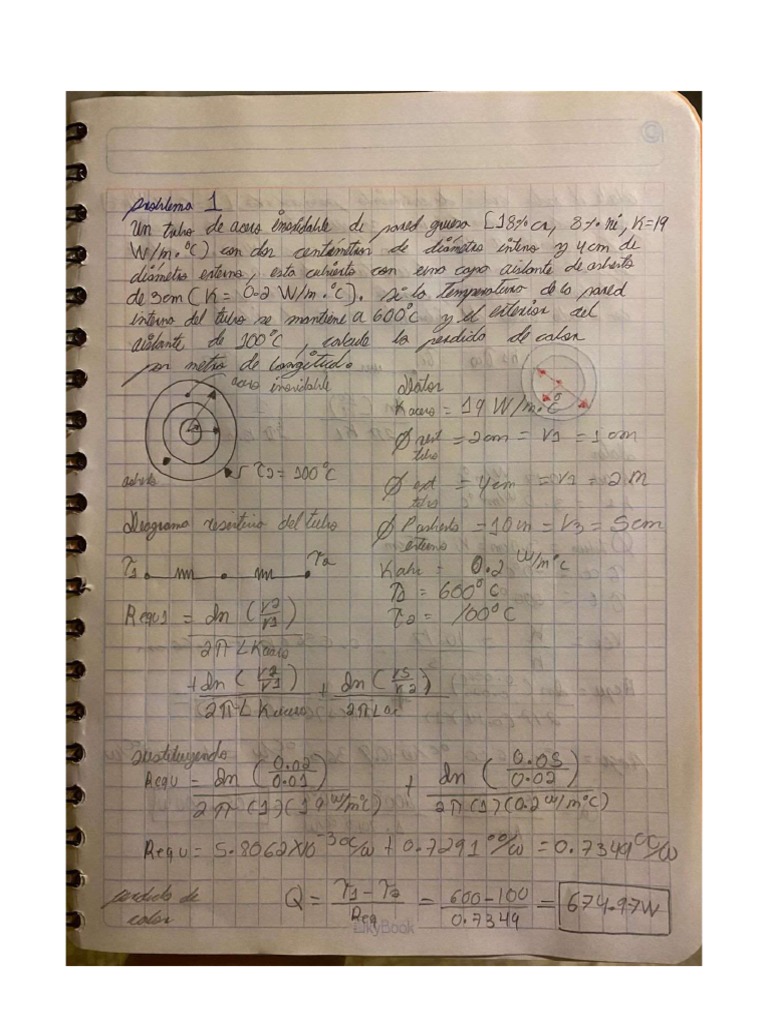 problema 1
un tubo de acero inoxidable de pared gruesa [18% cr, 8% ni, K=19
W/m.°C) con dos centímetros de diámetro interno y 4cm de
diámetro externo, esta cubierto con una capa aislante de asbesto
de 3cm (K= 0.2 W/m.°C). Si la Temperatura de la pared
interna del tubo se mantiene a 600°C y el exterior del
aislante de 100°C, calcule la perdida de calor
por metro de longitud.
acero inoxidable
asbesto
T2 = 100°C
Datos
K acero = 19 W/m.°C
Ø int tubo = 2cm = r1 = 1cm
Ø ext tubo = 4cm = r2 = 2 M
Ø asbesto externo = 10m = r3 = 5cm
= 0.2 W/m°C
T1 = 600°C
T2 = 100°C
Diagrama resistivo del tubo
T1 T2
Requ1 = ln (r2/r1) / 2π L Kacero
+ ln (r2/r1) / 2π L Kacero + ln (r3/r2) / 2π L
sustituyendo
Requ = ln (0.02/0.01) / 2π (1)(19 W/m°C) + ln (0.05/0.02) / 2π (1)(0.2 W/m°C)
Requ = 5.8062X10⁻³ °C/W + 0.7291 °C/W = 0.7349 °C/W
perdida de calor Q = T1 - T2 / Req = 600-100 / 0.7349 = 674.97W
SkyBook